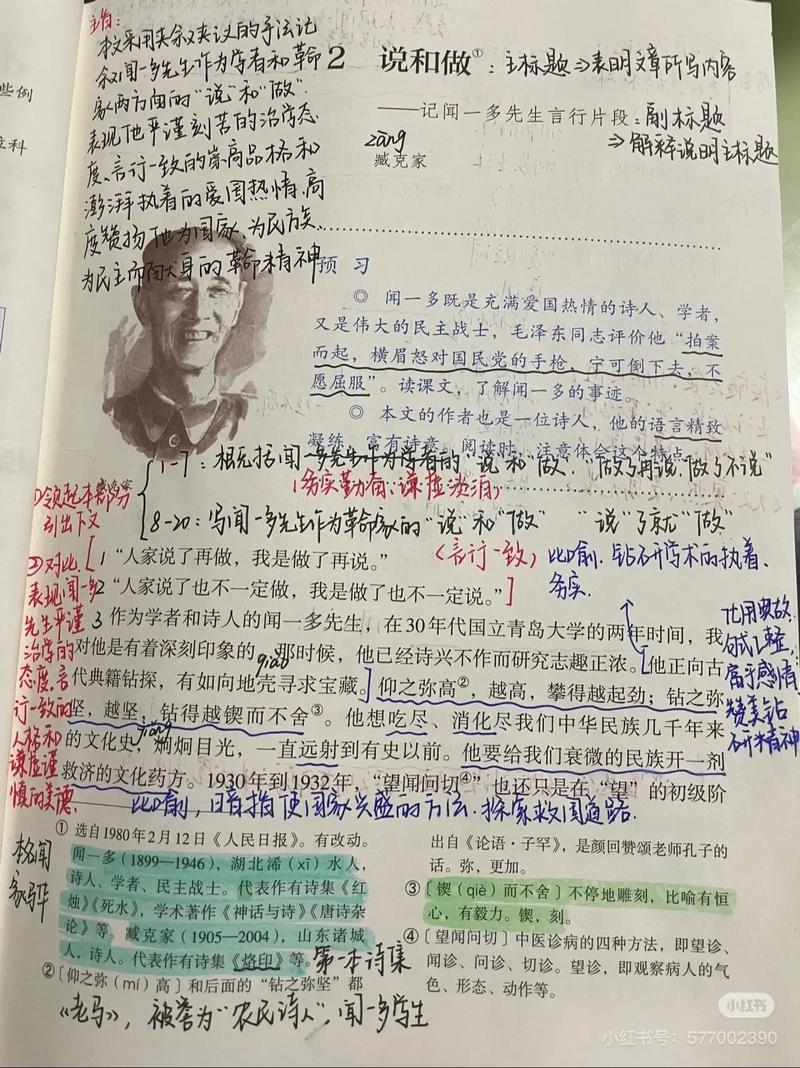 主旨:
本文采用夹叙夹议的手法记
叙闻一多先生作为学者和革命
家两方面的“说”和“做”.
表现他严谨刻苦的治学态
度、言行一致的崇高品格和
澎湃执着的爱国热情.高
度赞扬他为国家、为民族、
为民主而献身的革命精神
些例
立科
2 说和做① : 主标题⇒表明文章所写内容
——记闻一多先生言行片段 : 副标题
⇒解释说明主标题
zāng
臧克家
预 习
◎ 闻一多既是充满爱国热情的诗人、学者,
又是伟大的民主战士,毛泽东同志评价他“拍案
而起,横眉怒对国民党的手枪,宁可倒下去,不
愿屈服”。读课文,了解闻一多的事迹。
◎ 本文的作者也是一位诗人,他的语言精致
凝练,富有诗意。阅读时,注意体会这个特点。
1-7:概括闻一多先生作为学者的“说”和“做”.“做了再说.做了不说”
(务实勤奋.谦虚淡泊)
8-20:写闻一多先生作为革命家的“说”和“做” “说”了就“做”
(言行一致)
①领起本部分
引出下文
②对比.
表现闻一多
先生严谨
治学的
态度、言
行一致的
人格和
谦虚谨
慎的美德.
1 “人家说了再做,我是做了再说。”
2 “人家说了也不一定做,我是做了也不一定说。”
比喻.钻研学术的执着、
务实.
3 作为学者和诗人的闻一多先生,在30年代国立青岛大学的两年时间,我
对他是有着深刻印象的。那时候,他已经诗兴不作而研究志趣正浓。他正向古
代典籍钻探,有如向地壳寻求宝藏。仰之弥高②,越高,攀得越起劲;钻之弥
qiào
坚,越坚,钻得越锲而不舍③。他想吃尽、消化尽我们中华民族几千年来
jiǒng
的文化史,炯炯目光,一直远射到有史以前。他要给我们衰微的民族开一剂
救济的文化药方。1930年到1932年,“望闻问切④”也还只是在“望”的初级阶
化用典故.
句式工整,
富于感情
赞美钻
研精神
比喻,旧指使国家兴盛的方法.探索救国道路.
① 选自1980年2月12日《人民日报》。有改动。
闻一多(1899—1946),湖北浠(xī)水人,
诗人、学者、民主战士。代表作有诗集《红
烛》《死水》,学术著作《神话与诗》《唐诗杂
论》等。臧克家(1905—2004),山东诸城
人,诗人。代表作有诗集《烙印》等。
第一本诗集
② 〔仰之弥(mí)高〕和后面的“钻之弥坚”都
本名闻
家骅
《老马》,被誉为“农民诗人”,闻一多学生
出自《论语·子罕》,是颜回赞颂老师孔子的
话。弥,更加。
③ 〔锲(qiè)而不舍〕不停地雕刻,比喻有恒
心,有毅力。锲,刻。
④ 〔望闻问切〕中医诊病的四种方法,即望诊、
闻诊、问诊、切诊。望诊,即观察病人的气
色、形态、动作等。
小红书
小红书号:577002390